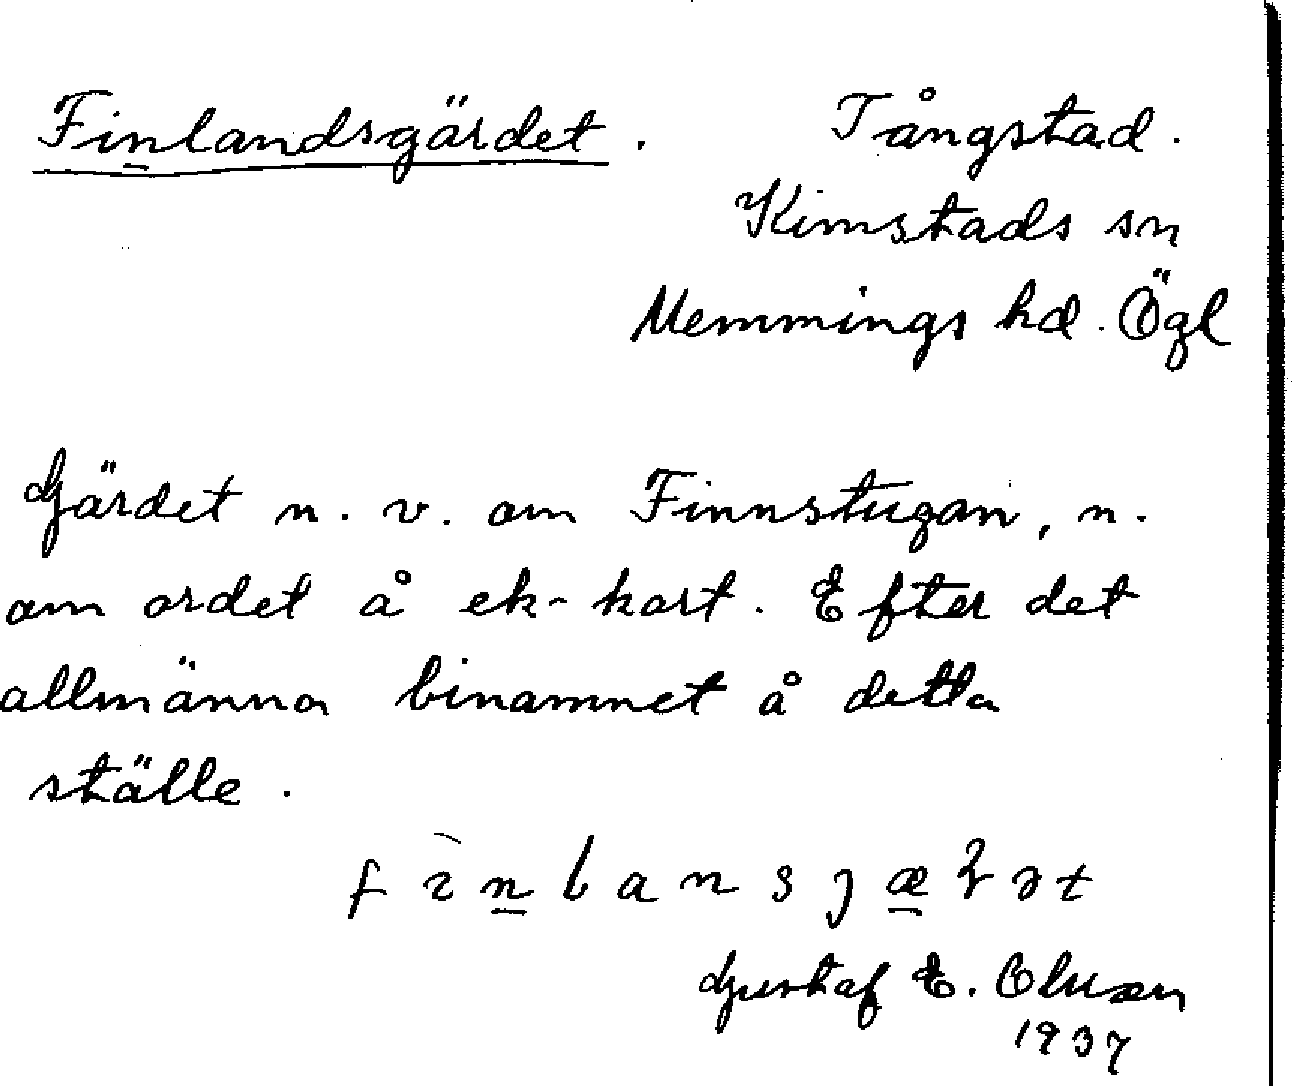 Finlandsgärdet. Tångstad.
Kimstads sn
Memmings hd. Ögl
Gärdet n. v. om Finnstugan, n.
om ordet å ek-kart. Efter det
allmänna binamnet å detta
ställe.
Gustaf E. Oluxen
1937